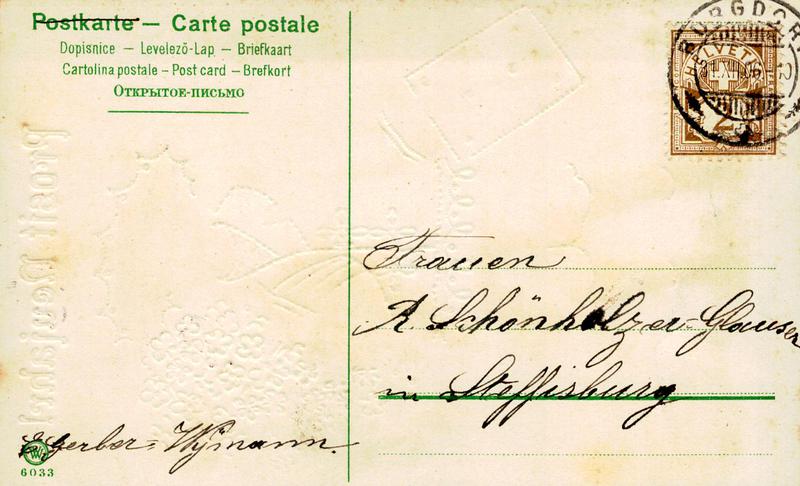 Postkarte — Carte postale
Dopisnice — Levelező-Lap — Briefkaart
Cartolina postale – Post card – Brefkort
Открытое-письмо
BURGDORF
HELVETIA
31.XII.06
2
Prosit Neujahr!
Frauen
A Schönholzer-Glauser
in Steffisburg
Gerber-Wymann.
6033